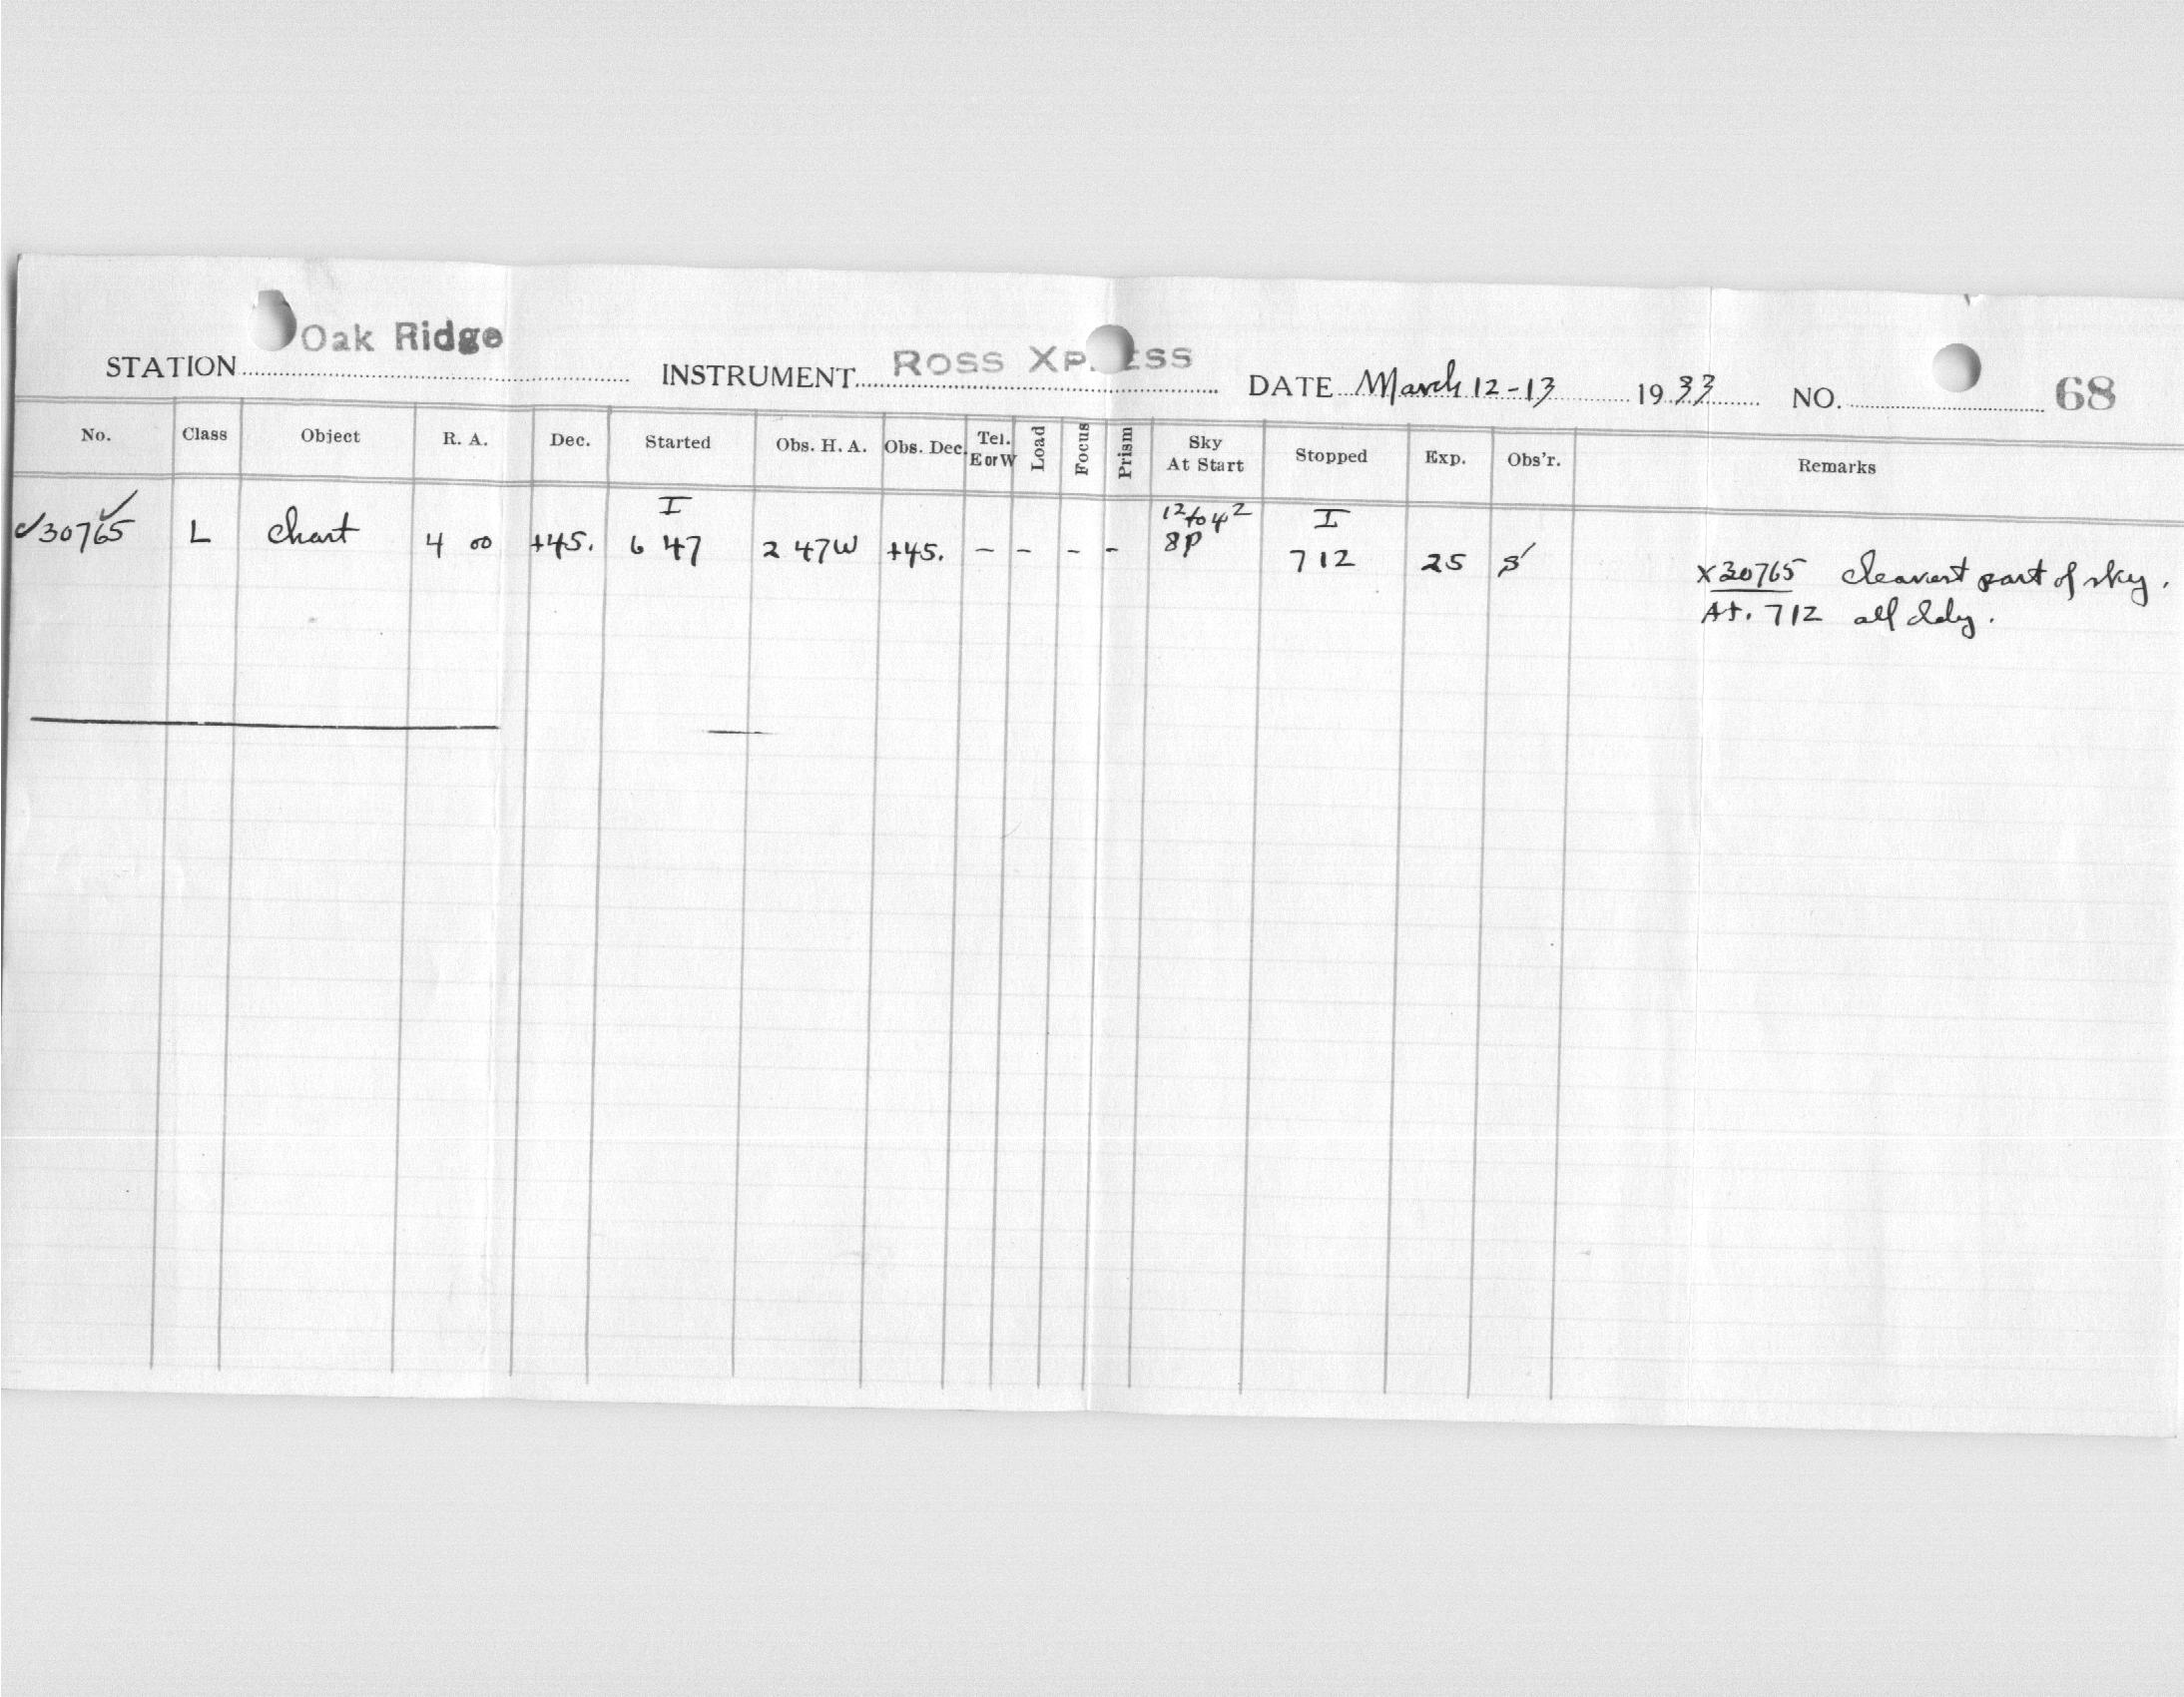 STATION Oak Ridge INSTRUMENT ROSS XPRESS DATE March 12-13 1933 NO. 68
No. Class Object R. A. Dec. Started Obs. H. A. Obs. Dec. Tel. E or W Load Focus Prism Sky At Start Stopped Exp. Obs'r. Remarks
I 12 to 4 2 I
✓30765 ✓ L Chart 4 00 +45. 6 47 2 47W +45. - - - - 8P 7 12 25 S
X30765 Clearest part of sky.
At. 712 all cldy.